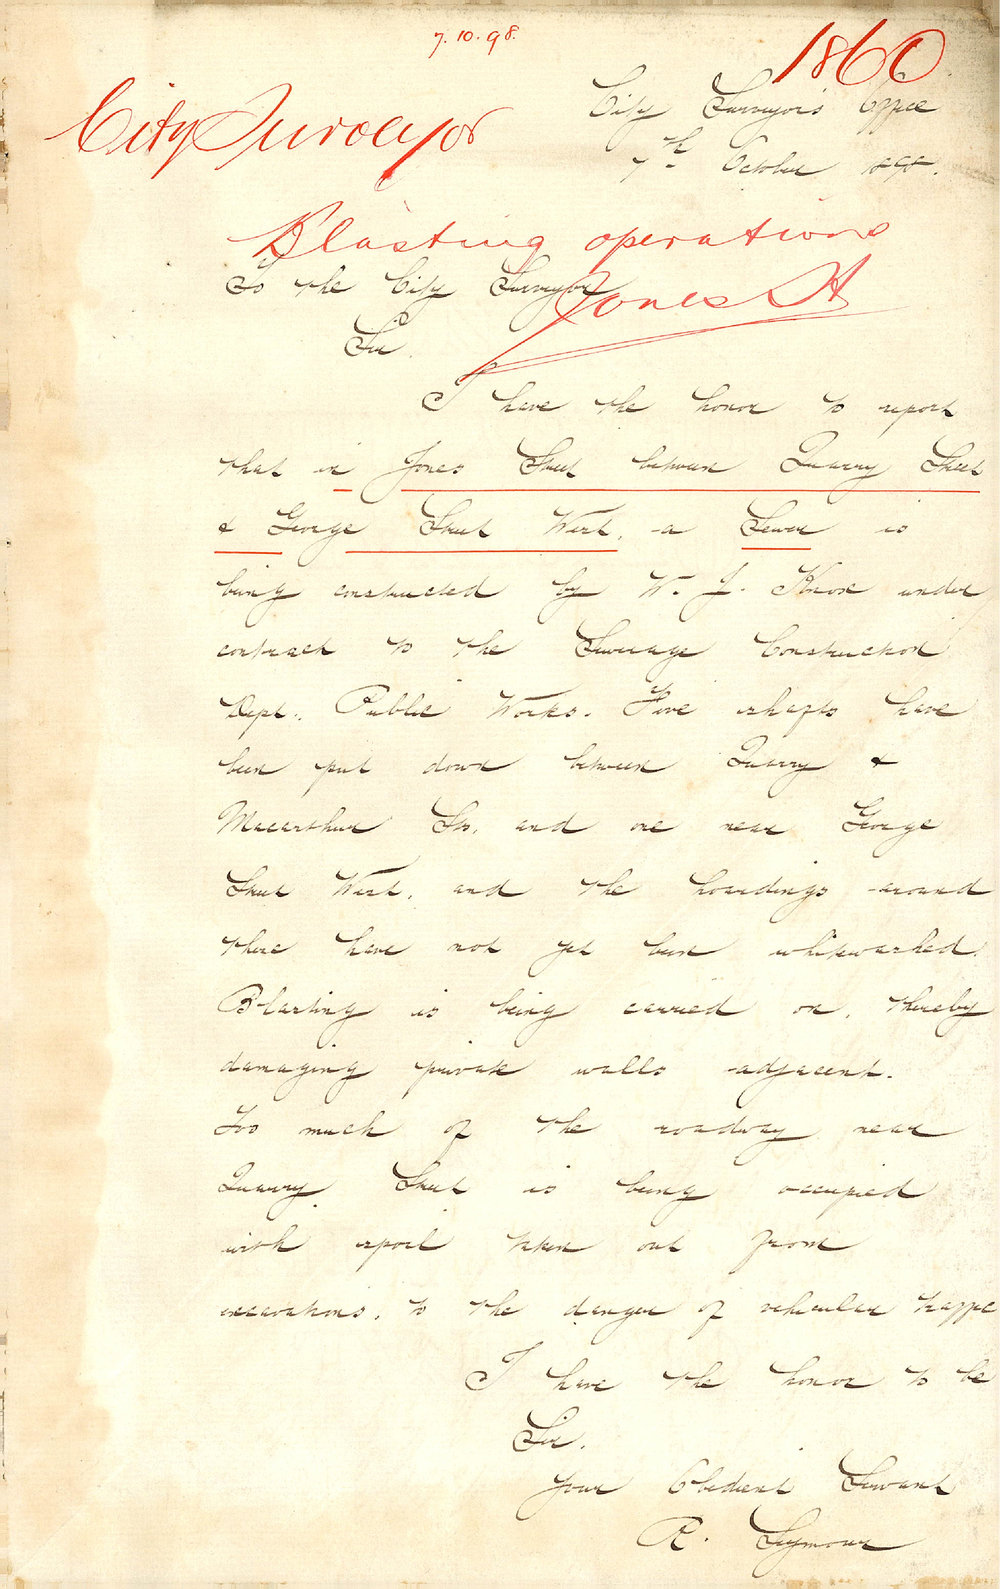 7.10.98.
1860
City Surveyor
City Surveyor's Office
7th October 1898.
Blasting operations
Jones St
To the City Surveyor
Sir.
I have the honor to report
that in Jones Street between Quarry Street
& George Street West, a Sewer is
being constructed by W. J. Knox under
contract to the Sewerage Construction
Dept., Public Works. Five shafts have
been put down between Quarry &
Macarthur Sts. and one near George
Street West, and the hoardings around
there have not yet been whitewashed.
Blasting is being carried on, thereby
damaging private walls adjacent.
Too much of the roadway near
Quarry Street is being occupied
with spoil taken out from
excavations, to the danger of vehicular traffic
I have the honor to be
Sir.
Your Obedient Servant
R. Seymour